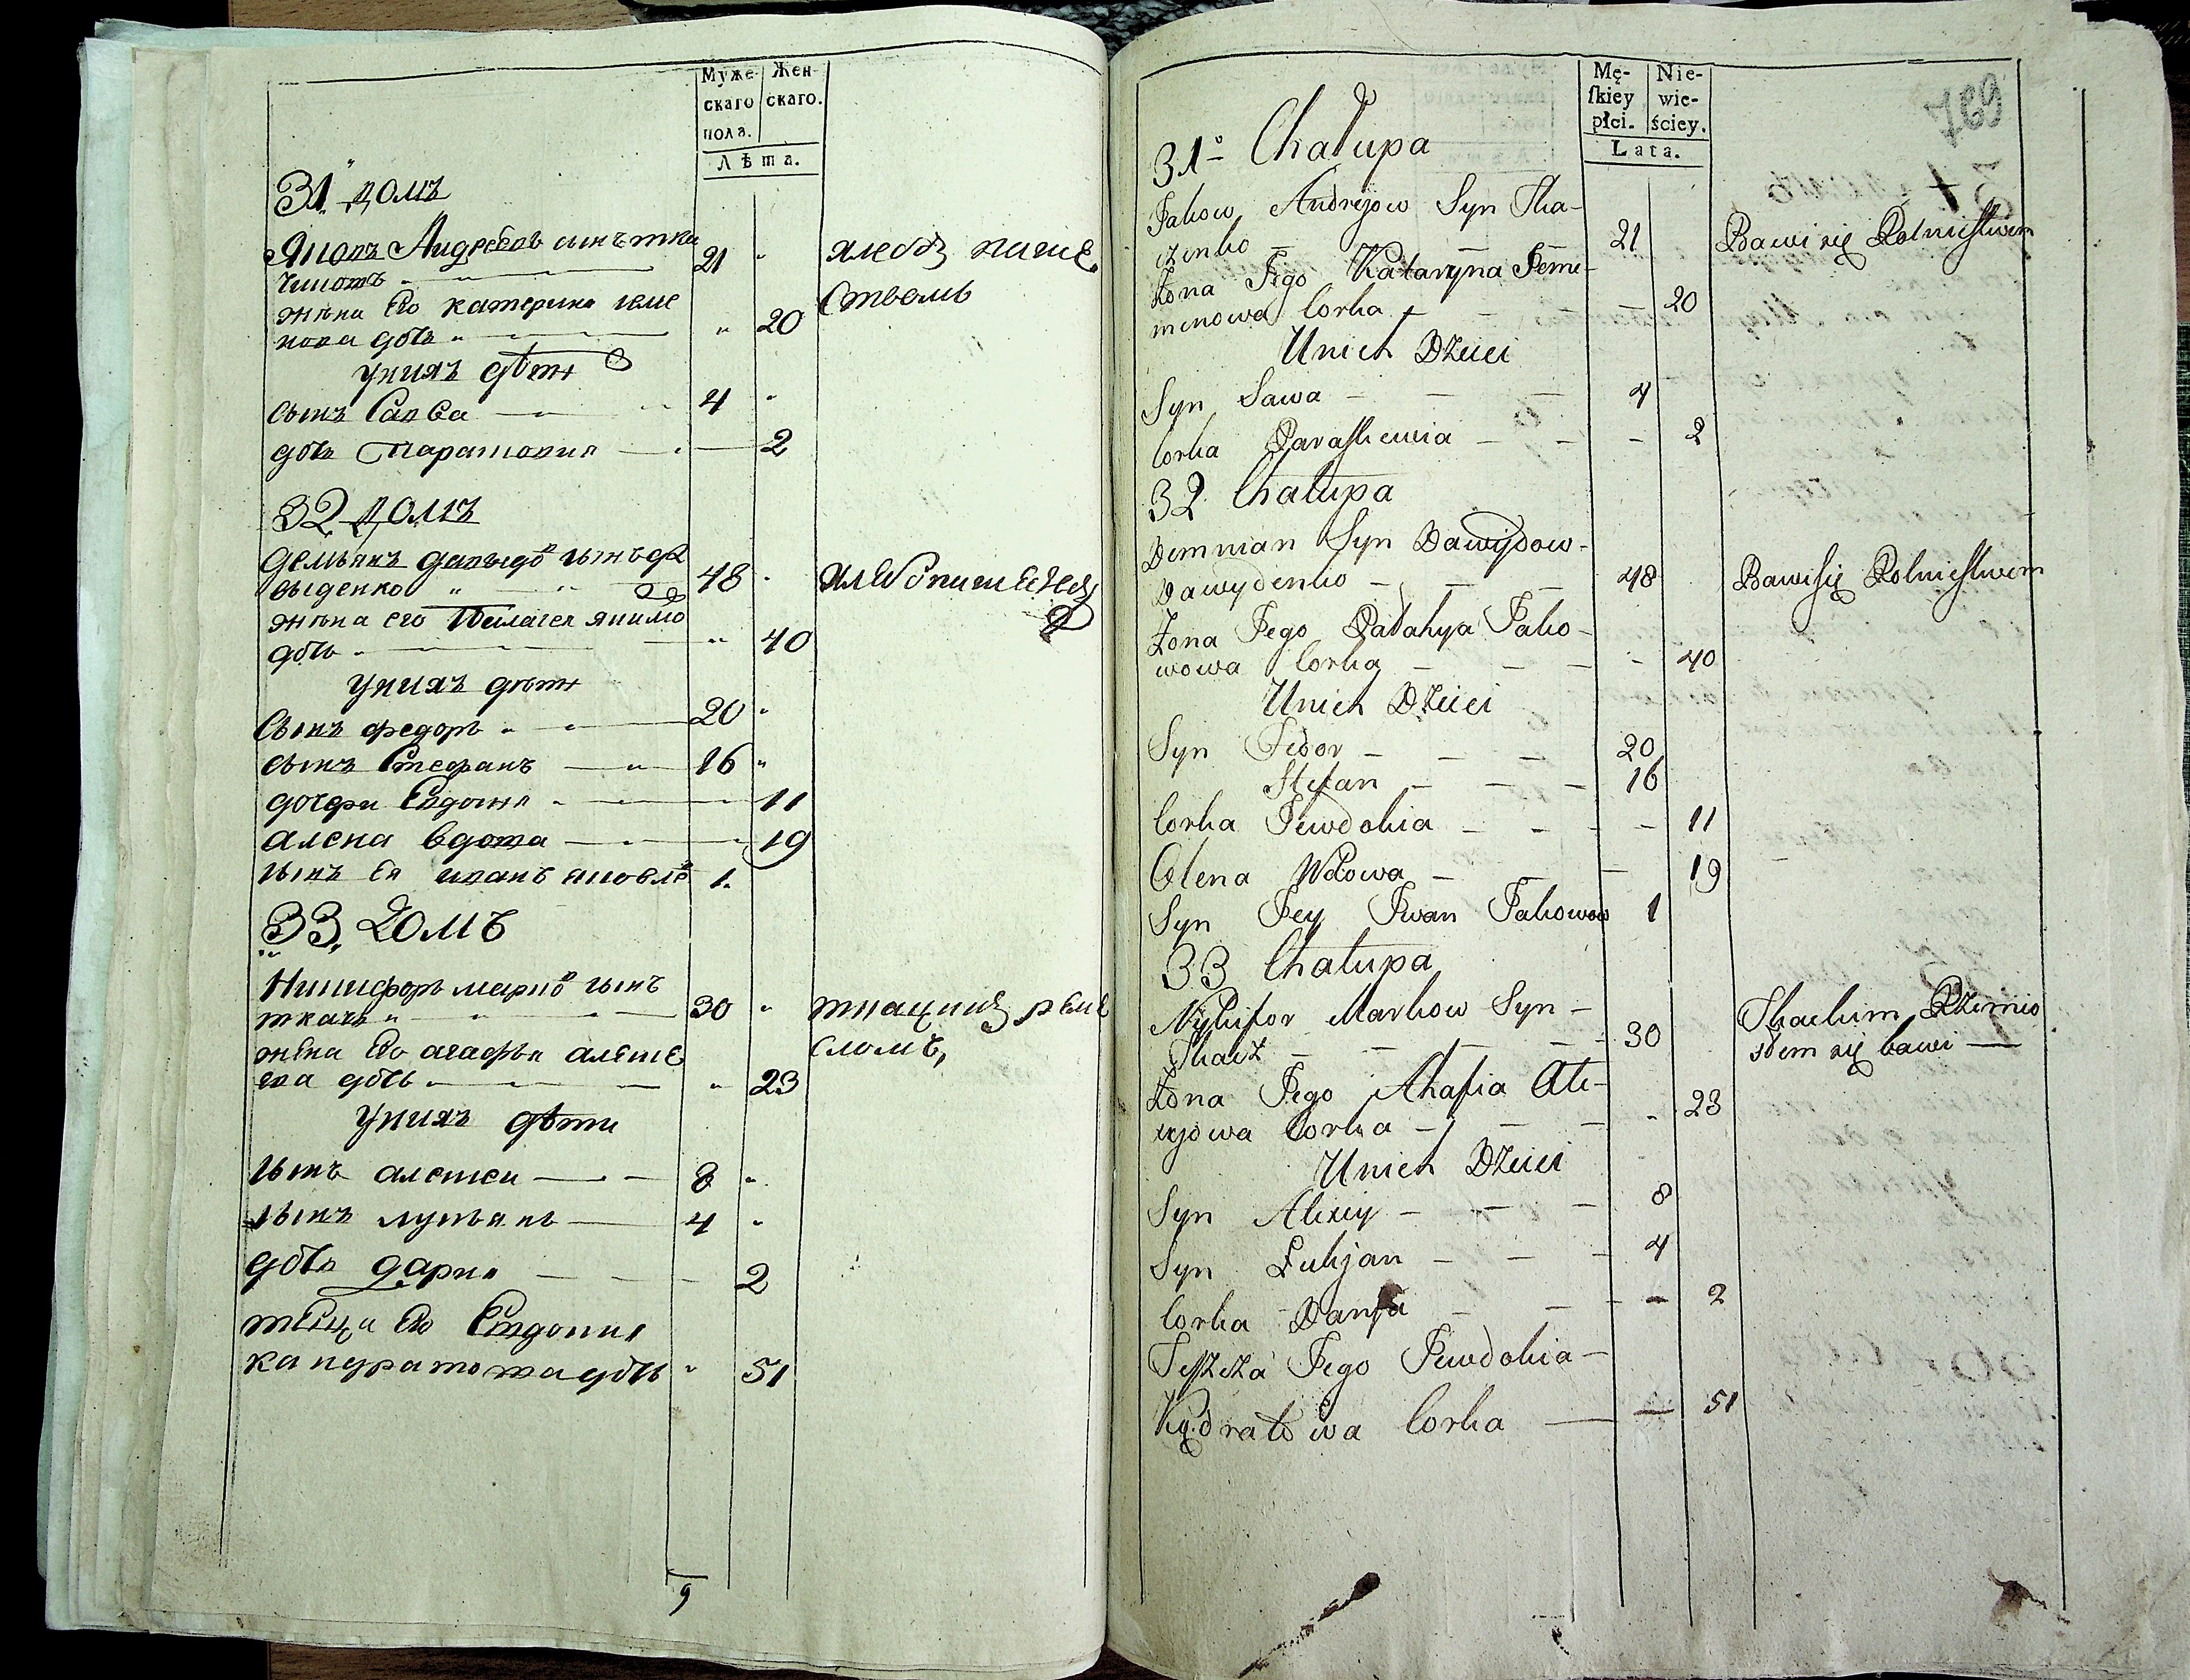 Муже- Жен-
скаго скаго.
пола.
Лѣта.
31 домъ
Яковъ Андреевъ сынъ тка
ченко 21 хлебопаше
жена Его катерина семе ством
нова дочь 20
у них дѣти
сынъ Савва 4
дочь Параскевия 2
32 домъ
демьянъ давыдов сынъ да
выденко 48 хлебопашец
жена его Пелагея якимо
дочь 40
у них дети
Сынъ федоръ 20
сынъ Стефанъ 16
дочери Евдокия 11
алена вдова 19
сынъ Ея иванъ яковле 1.
33, домъ
Никифоръ марков сынъ
ткачъ 30 ткацким реме
жена Его агафья алексе сломъ,
ева дочь 23
у них дѣти
сынъ алексеи 8
сынъ лукьянъ 4
дочь дария 2
теща Его Евдокия
кандратова дочь 51
9
Mę- Nie-
ſkiey wie-
płci. ściey.
Lata.
769
31 Chałupa
Jakow Andrejow Syn Tka-
czenko 21 Bawi się Rolnictwem
Żona Jego Kataryna Seme-
menowa Corka 20
Unich Dzieci
Syn Sawa 4
Corka Paraskewia 2
32 Chałupa
Demnian Syn Dawydow-
Dawydenko 48 Bawi się Rolnictwem
Żona Jego Palahya Jako-
wowa Corka 40
Unich Dzieci
Syn Fedor 20
Stefan 16
Corka Jewdokia 11
Olena Wdowa 19
Syn Jey Iwan Jakowow 1
33 Chałupa
Nykifor Markow Syn
Tkacz 30 Tkackim Rzemio
Żona Jego Ahafia Ale- słem się bawi
xyiowa Corka 23
Unich Dzieci
Syn Alexiy 8
Syn Łukjan 4
Corka Darya 2
Teszcza Jego Jewdokia
Kądratowa Corka 51